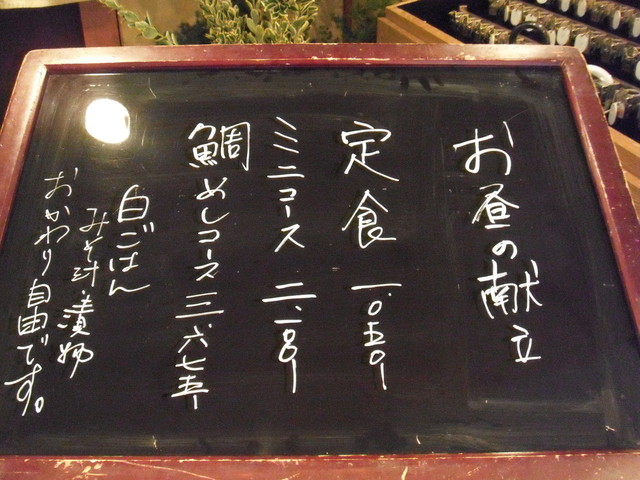 お昼の献立
定食 一.〇五〇ー
ミニコース 二.一〇〇ー
鯛めしコース 三.六七五ー
白ごはん
みそ汁・漬物
おかわり自由です。